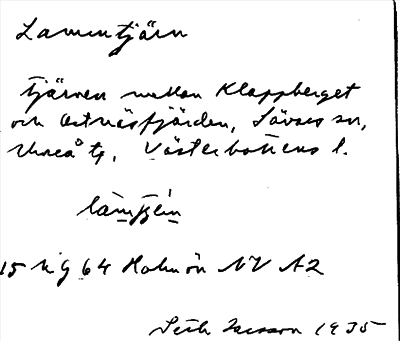 Lamentjärn
Tjärnen mellan Klappberget
och Östnäsfjärden, Sävars sn,
Umeå tg, Västerbottens l.
15 64 Holmön NV A2
Seth 1935